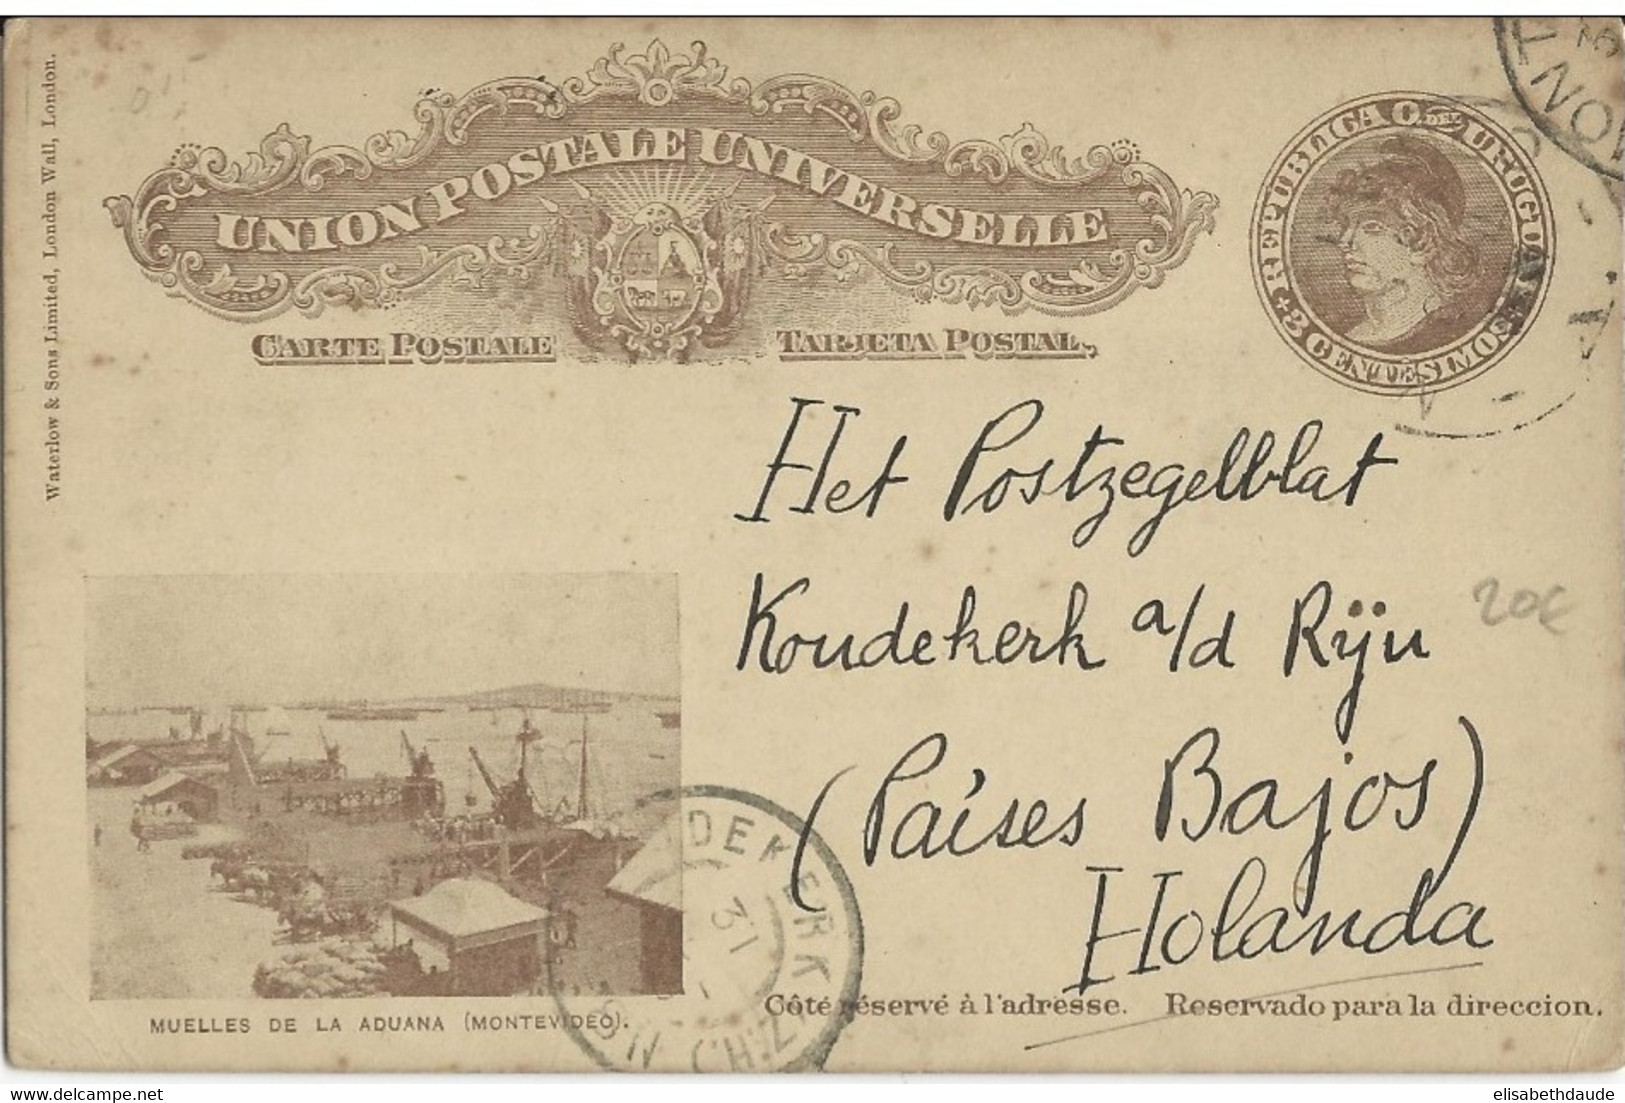 Waterlow & Sons Limited, London Wall, London.
UNION POSTALE UNIVERSELLE
CARTE POSTALE TARJETA POSTAL
REPUBLICA O. DEL URUGUAY
3 CENTESIMOS
MONT
Het Postzegelblat
Koudekerk a/d Rijn
20€
(Païses Bajos)
Holanda
KOUDEKERK
31
(Z.H.)
MUELLES DE LA ADUANA (MONTEVIDEO).
Côté réservé à l'adresse. Reservado para la direccion.
elisabethdaude